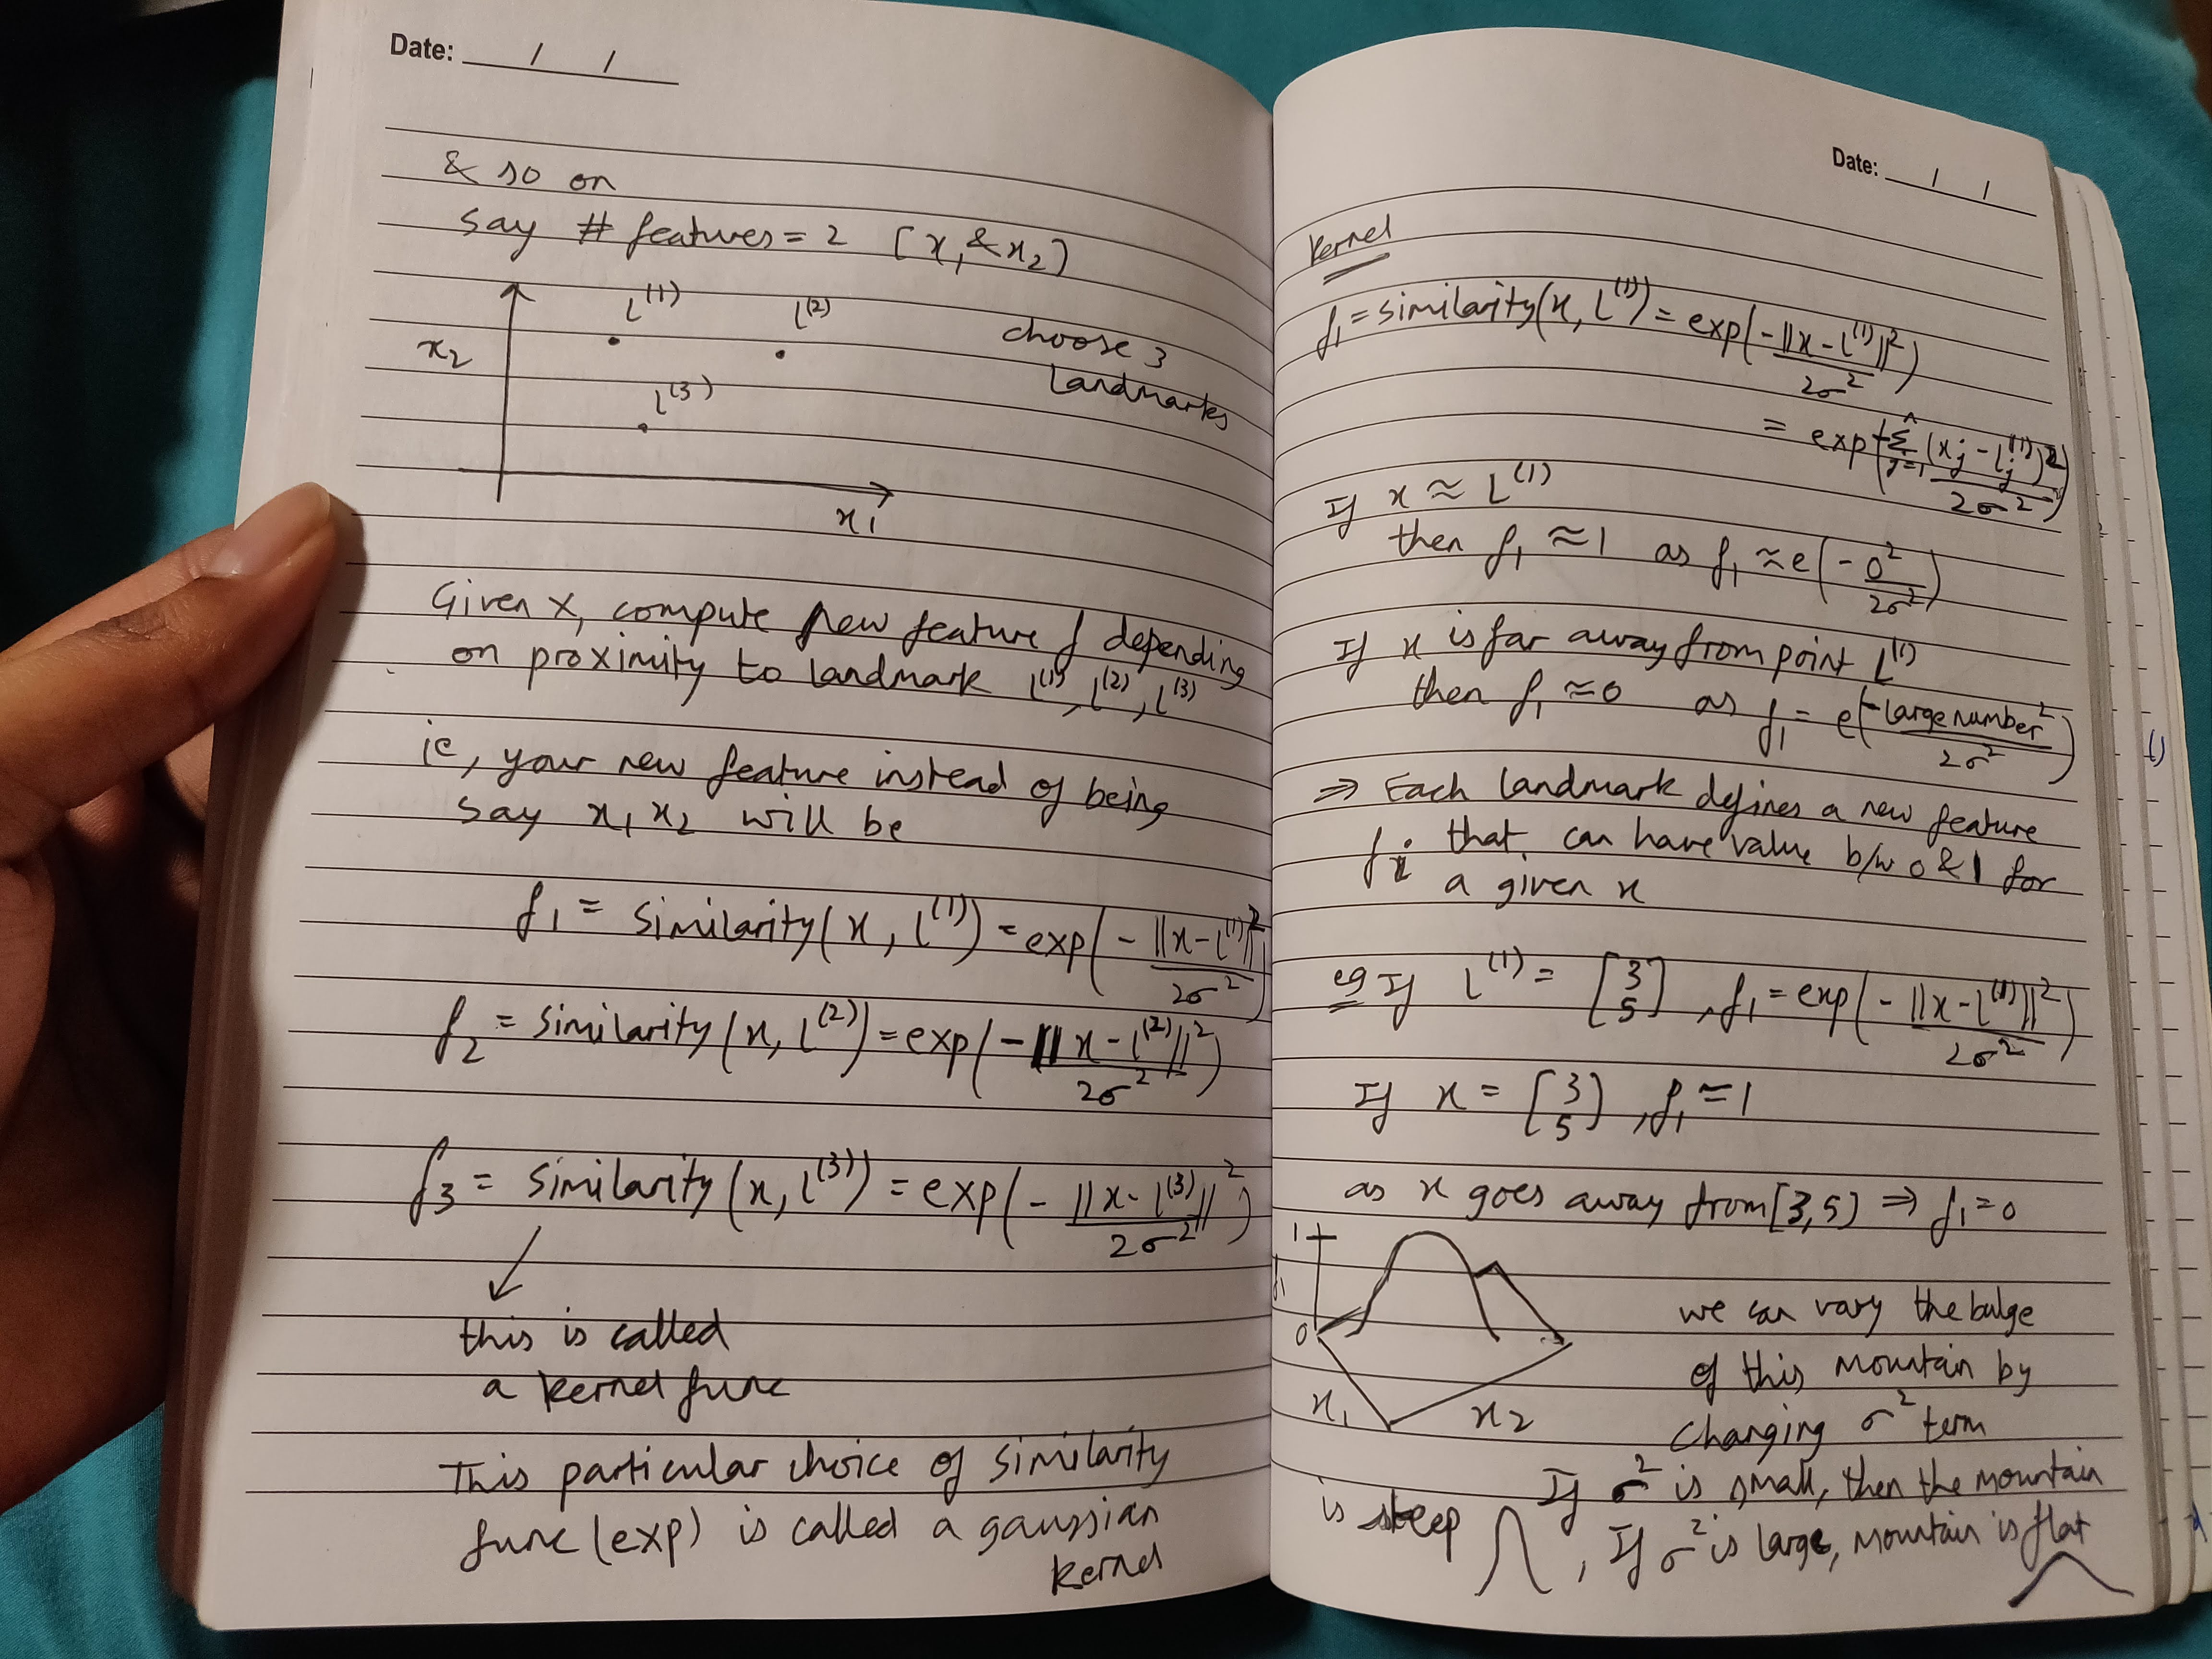 Date: / /
& so on
say # features = 2 [x₁ & x₂]
L⁽¹⁾
L⁽²⁾
x₂
choose 3
Landmarks
L⁽³⁾
x₁
Given X, compute new feature f depending
on proximity to landmark L⁽¹⁾, L⁽²⁾, L⁽³⁾
ie, your new feature instead of being
say x₁ x₂ will be
f₁ = similarity(x, L⁽¹⁾) = exp(- ||x-L⁽¹⁾||² / 2σ²)
f₂ = similarity(x, L⁽²⁾) = exp(- ||x-L⁽²⁾||² / 2σ²)
f₃ = similarity(x, L⁽³⁾) = exp(- ||x-L⁽³⁾||² / 2σ²)
this is called
a kernel func
This particular choice of similarity
func (exp) is called a gaussian
kernel
Date: / /
Kernel
f₁ = similarity(x, L⁽¹⁾) = exp(- ||x-L⁽¹⁾||² / 2σ²)
= exp(- Σⁿⱼ₌₁ (xⱼ - Lⱼ⁽¹⁾)² / 2σ²)
If x ≈ L⁽¹⁾
then f₁ ≈ 1 as f₁ ≈ e(- 0² / 2σ²)
If x is far away from point L⁽¹⁾
then f₁ ≈ 0 as f₁ = e(- large number² / 2σ²)
⇒ Each landmark defines a new feature
fᵢ that can have value b/w 0 & 1 for
a given x
eg If L⁽¹⁾ = [3 5], f₁ = exp(- ||x-L⁽¹⁾||² / 2σ²)
If x = [3 5], f₁ ≈ 1
as x goes away from [3,5] ⇒ f₁ = 0
1
f₁
0
x₁
x₂
we can vary the bulge
of this mountain by
changing σ² term
If σ² is small, then the mountain
is steep , If σ² is large, mountain is flat